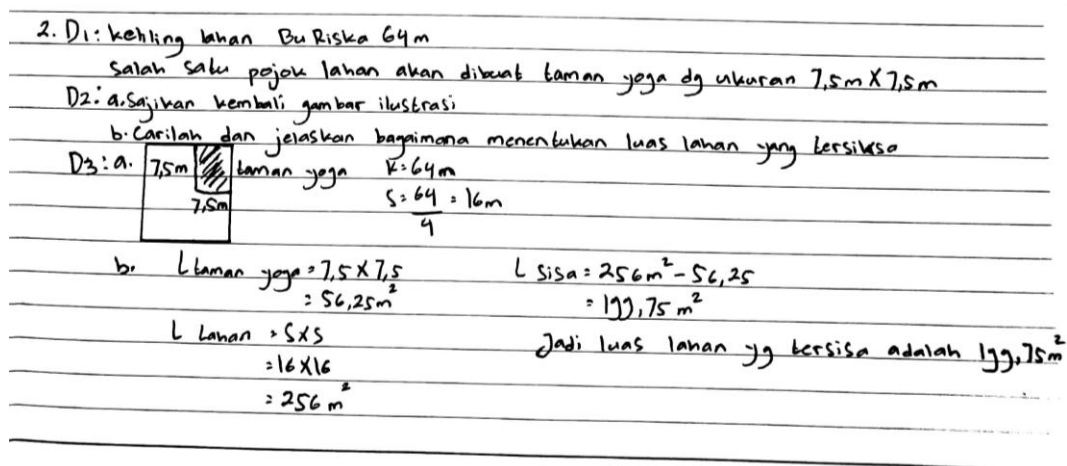 2. D1: kehling lahan Bu Riska 64 m
Salah satu pojok lahan akan dibuat taman yoga dg ukuran 7,5m X 7,5m
D2: a. Sajikan kembali gambar ilustrasi
b. Carilah dan jelaskan bagaimana menentukan luas lahan yang tersiksa
D3: a. 7,5m taman yoga
7,5m
K = 64m
S = 64/4 = 16m
b. L taman yoga = 7,5 X 7,5
= 56,25m²
L Lahan = S X S
= 16 X 16
= 256 m²
L Sisa = 256m² - 56,25
= 199,75 m²
Jadi luas lahan yg tersisa adalah 199,75m²